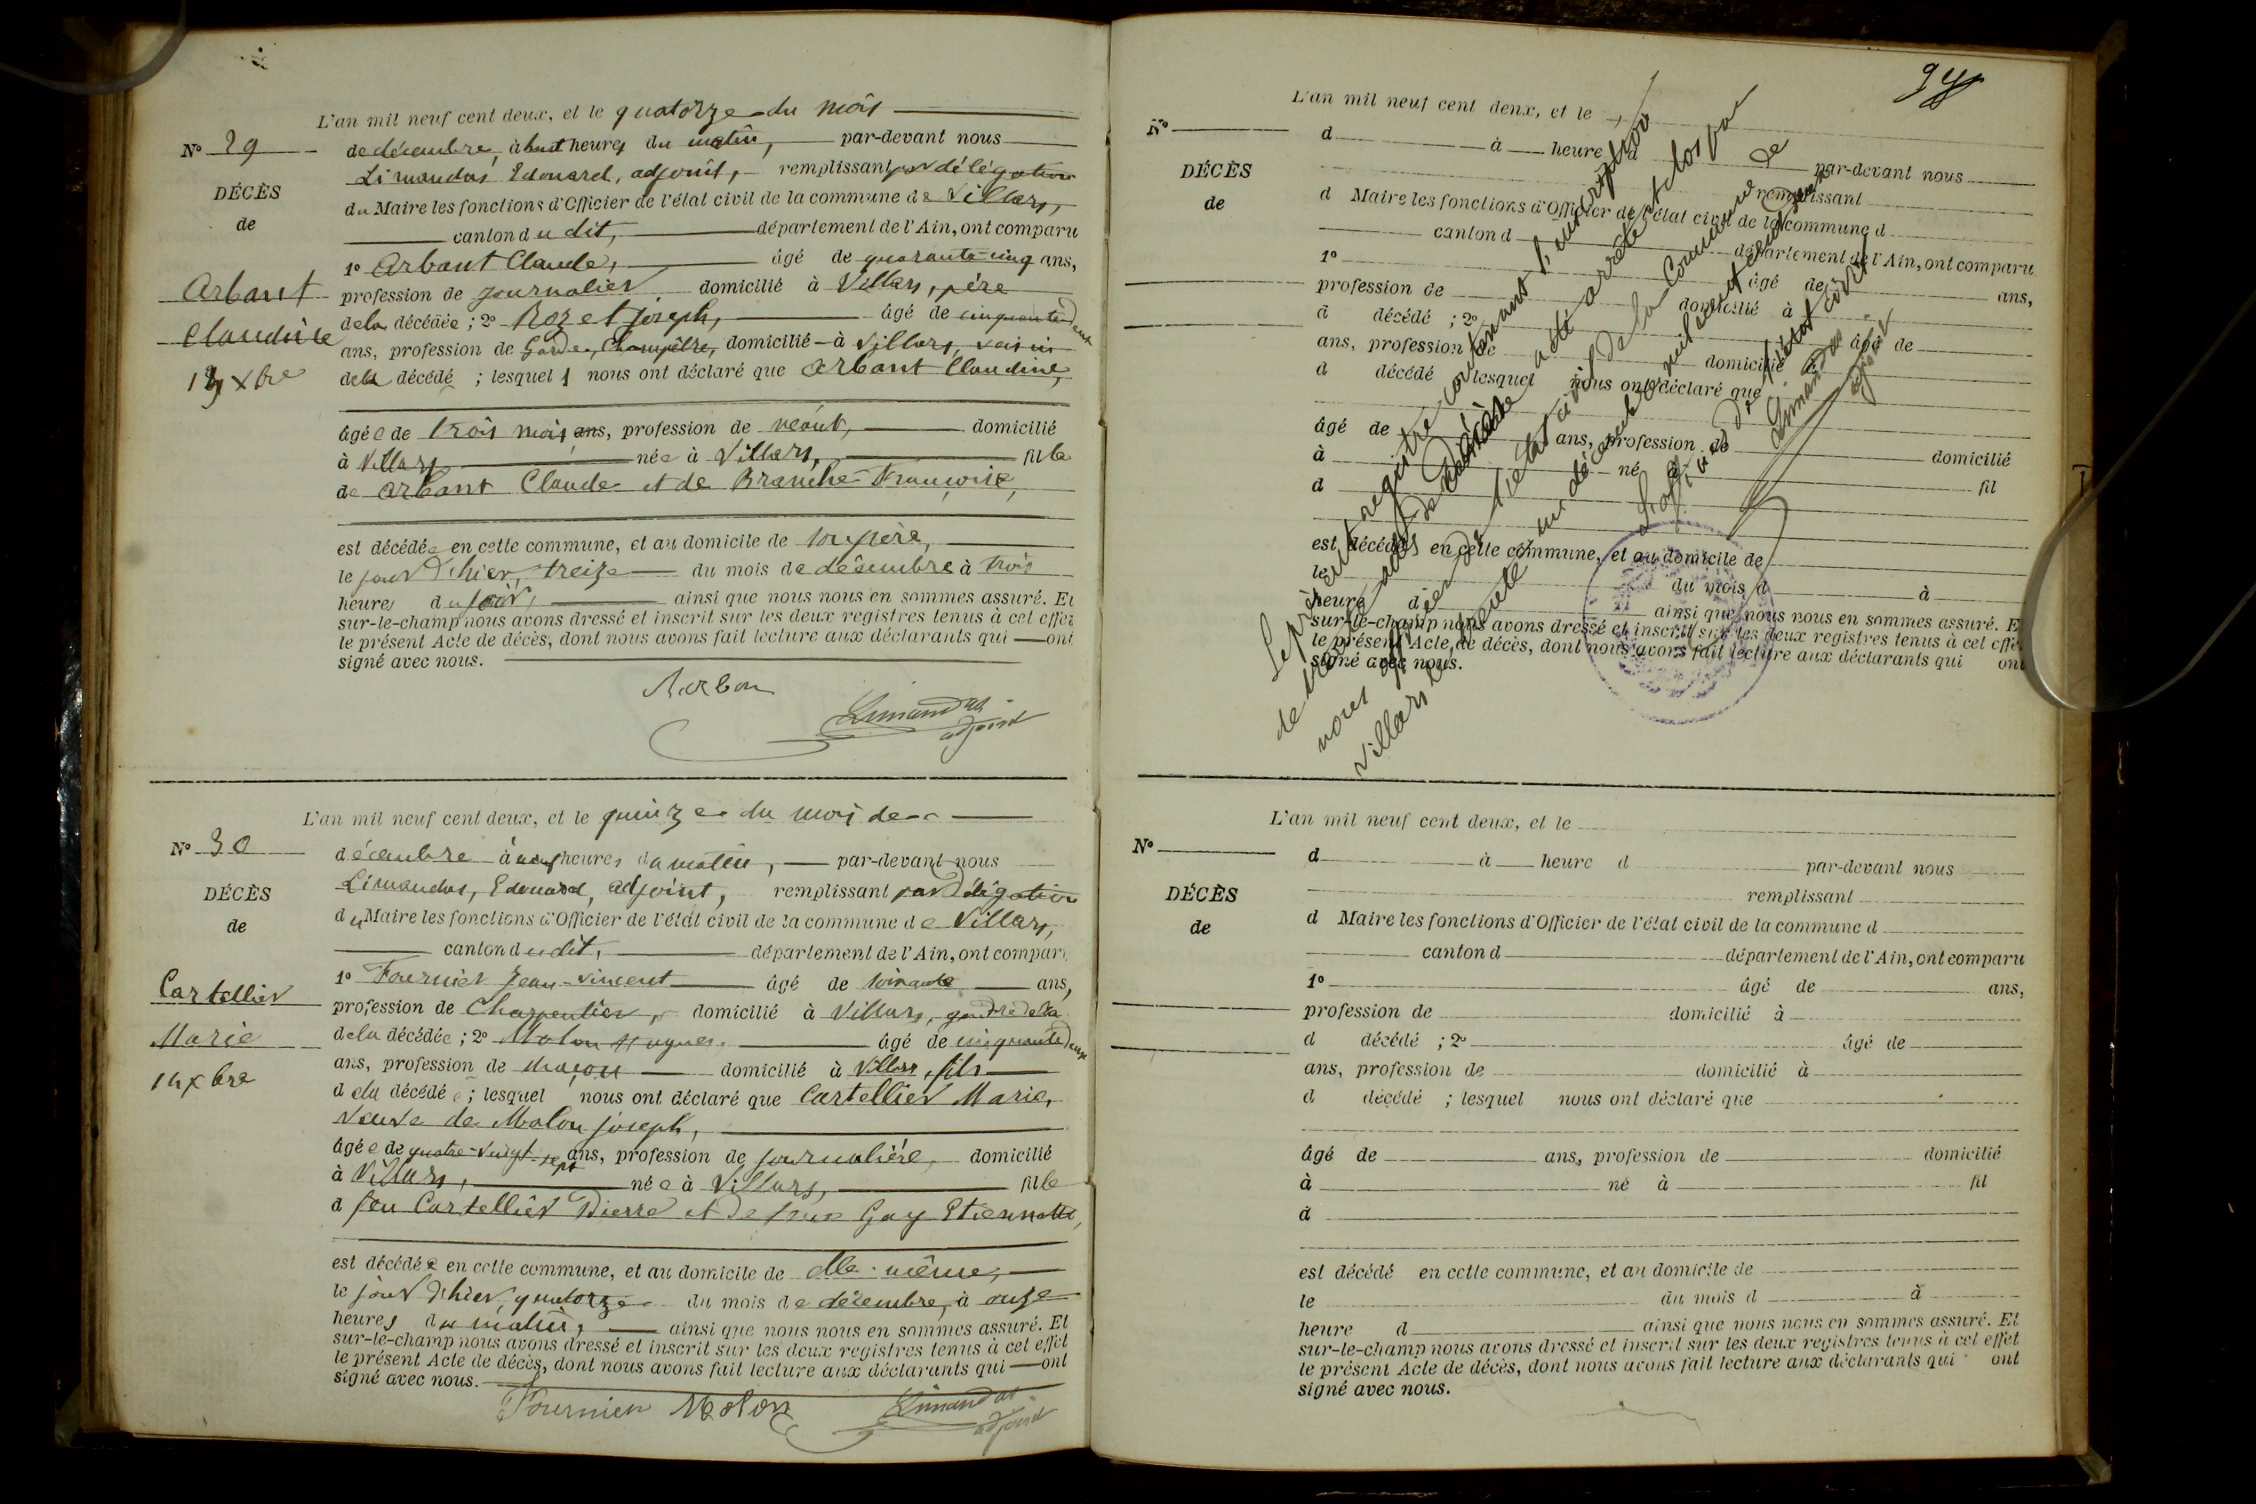 L'an mil neuf cent deux, et le quatorze du mois
N° 29
de décembre, à huit heures du matin, par-devant nous
Limandas Edouard, adjoint, remplissant par délégation
DÉCÈS
du Maire les fonctions d'Officier de l'état civil de la commune de Villars,
de
canton du dit, département de l'Ain, ont comparu
1° Arbant Claude, âgé de quarante-cinq ans,
Arbant
profession de journalier domicilié à Villars, père
Claudine
de la décédée ; 2° Rozet Joseph, âgé de cinquante deux
ans, profession de Garde-Champêtre, domicilié à Villars, voisin
13 Xbre
de la décédé ; lesquels nous ont déclaré que Arbant Claudine,
âgée de trois mois ans, profession de néant, domicilié
à Villars née à Villars, fille
de Arbant Claude et de Branche Françoise,
est décédée en cette commune, et au domicile de son père,
le jour d'hier, treize du mois de décembre à trois
heures du soir, ainsi que nous nous en sommes assuré. Et
sur-le-champ nous avons dressé et inscrit sur les deux registres tenus à cet effet
le présent Acte de décès, dont nous avons fait lecture aux déclarants qui ont
signé avec nous.
Limandas
adjoint
L'an mil neuf cent deux, et le quinze du mois de
N° 30
décembre à neuf heures du matin, par-devant nous
Limandas, Edouard, adjoint, remplissant par délégation
DÉCÈS
du Maire les fonctions d'Officier de l'état civil de la commune de Villars,
de
canton dudit, département de l'Ain, ont comparu
1° Fournier Jean-Vincent âgé de soixante ans,
Cartellier
profession de Charpentier, domicilié à Villars, gendre de la
Marie
de la décédée ; 2° Molon Hugues âgé de cinquante deux
14 Xbre
ans, profession de maçon domicilié à Villars, fils
de la décédée ; lesquel nous ont déclaré que Cartellier Marie,
veuve de Molon Joseph,
âgée de quatre-vingt-sept ans, profession de journalière, domicilié
à Villars, née à Villars, fille
d feu Cartellier Pierre et de feue Gay Etiennette,
est décédée en cette commune, et au domicile de elle-même,
le jour d'hier, quatorze du mois de décembre, à onze
heures du matin, ainsi que nous nous en sommes assuré. Et
sur-le-champ nous avons dressé et inscrit sur les deux registres tenus à cet effet
le présent Acte de décès, dont nous avons fait lecture aux déclarants qui ont
signé avec nous.
Fournier Molon Limandas
adjoint
L'an mil neuf cent deux, et le
N°
d à heure d par-devant nous
remplissant
DÉCÈS
d Maire les fonctions d'Officier de l'état civil de la commune d
de
canton d département de l'Ain, ont comparu
1° âgé de ans,
profession de domicilié à
d décédé ; 2° âgé de
ans, profession de domicilié à
d décédé lesquel nous ont déclaré que
âgé de ans, profession de domicilié
à né à
d fil
est décédé en cette commune, et au domicile de
le du mois d à
heure d ainsi que nous nous en sommes assuré. Et
sur-le-champ nous avons dressé et inscrit sur les deux registres tenus à cet effet
le présent Acte de décès, dont nous avons fait lecture aux déclarants qui ont
signé avec nous.
Le présent registre contenant l'inscription
de trente actes de décès a été arrêté et clos par
nous officier de l'état civil de la commune de
Villars le trente un décembre mil neuf cent deux
L'officier de l'état civil
Limandas
adjoint
L'an mil neuf cent deux, et le
N°
d à heure d par-devant nous
remplissant
DÉCÈS
d Maire les fonctions d'Officier de l'état civil de la commune d
de
canton d département de l'Ain, ont comparu
1° âgé de ans,
profession de domicilié à
d décédé ; 2° âgé de
ans, profession de domicilié à
d décédé ; lesquel nous ont déclaré que
âgé de ans, profession de domicilié
à né à fil
d
est décédé en cette commune, et au domicile de
le du mois d à
heure d ainsi que nous nous en sommes assuré. Et
sur-le-champ nous avons dressé et inscrit sur les deux registres tenus à cet effet
le présent Acte de décès, dont nous avons fait lecture aux déclarants qui ont
signé avec nous.